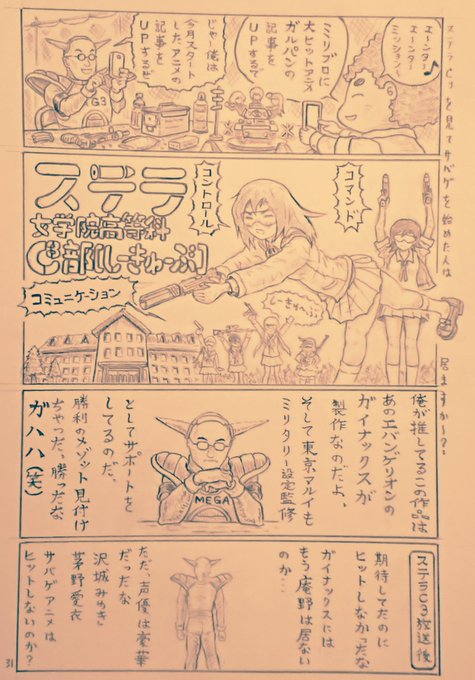 ステラC3を見てサバゲを始めた人は
居ますか〜?
エ〜ンター
エ〜ンター
ミッション〜♪
ミリブロに
大ヒットアニメ
ガルパンの
記事を
UPするで
じゃ俺は
今月スタート
したアニメの
記事を
UPするぜ
G3
コマンド
コントロール
ステラ
女学院高等科
C3部[しーきゅーぶ]
コミュニケーション
しーきゅーぶ
俺が推してるこの作品は
あのエバンゲリオンの
ガイナックスが
製作なのだよ、
そして東京マルイも
ミリタリー設定監修
としてサポートを
してるのだ、
勝利のメゾット見付け
ちゃった、勝ったな
ガハハ(笑)
MEGA
ステラC3放送後
期待してたのに
ヒットしなかったな
ガイナックスには
もう庵野は居ない
のか…
ただ、声優は豪華
だったな
沢城みゆき
茅野愛衣
サバゲアニメは
ヒットしないのか?
31